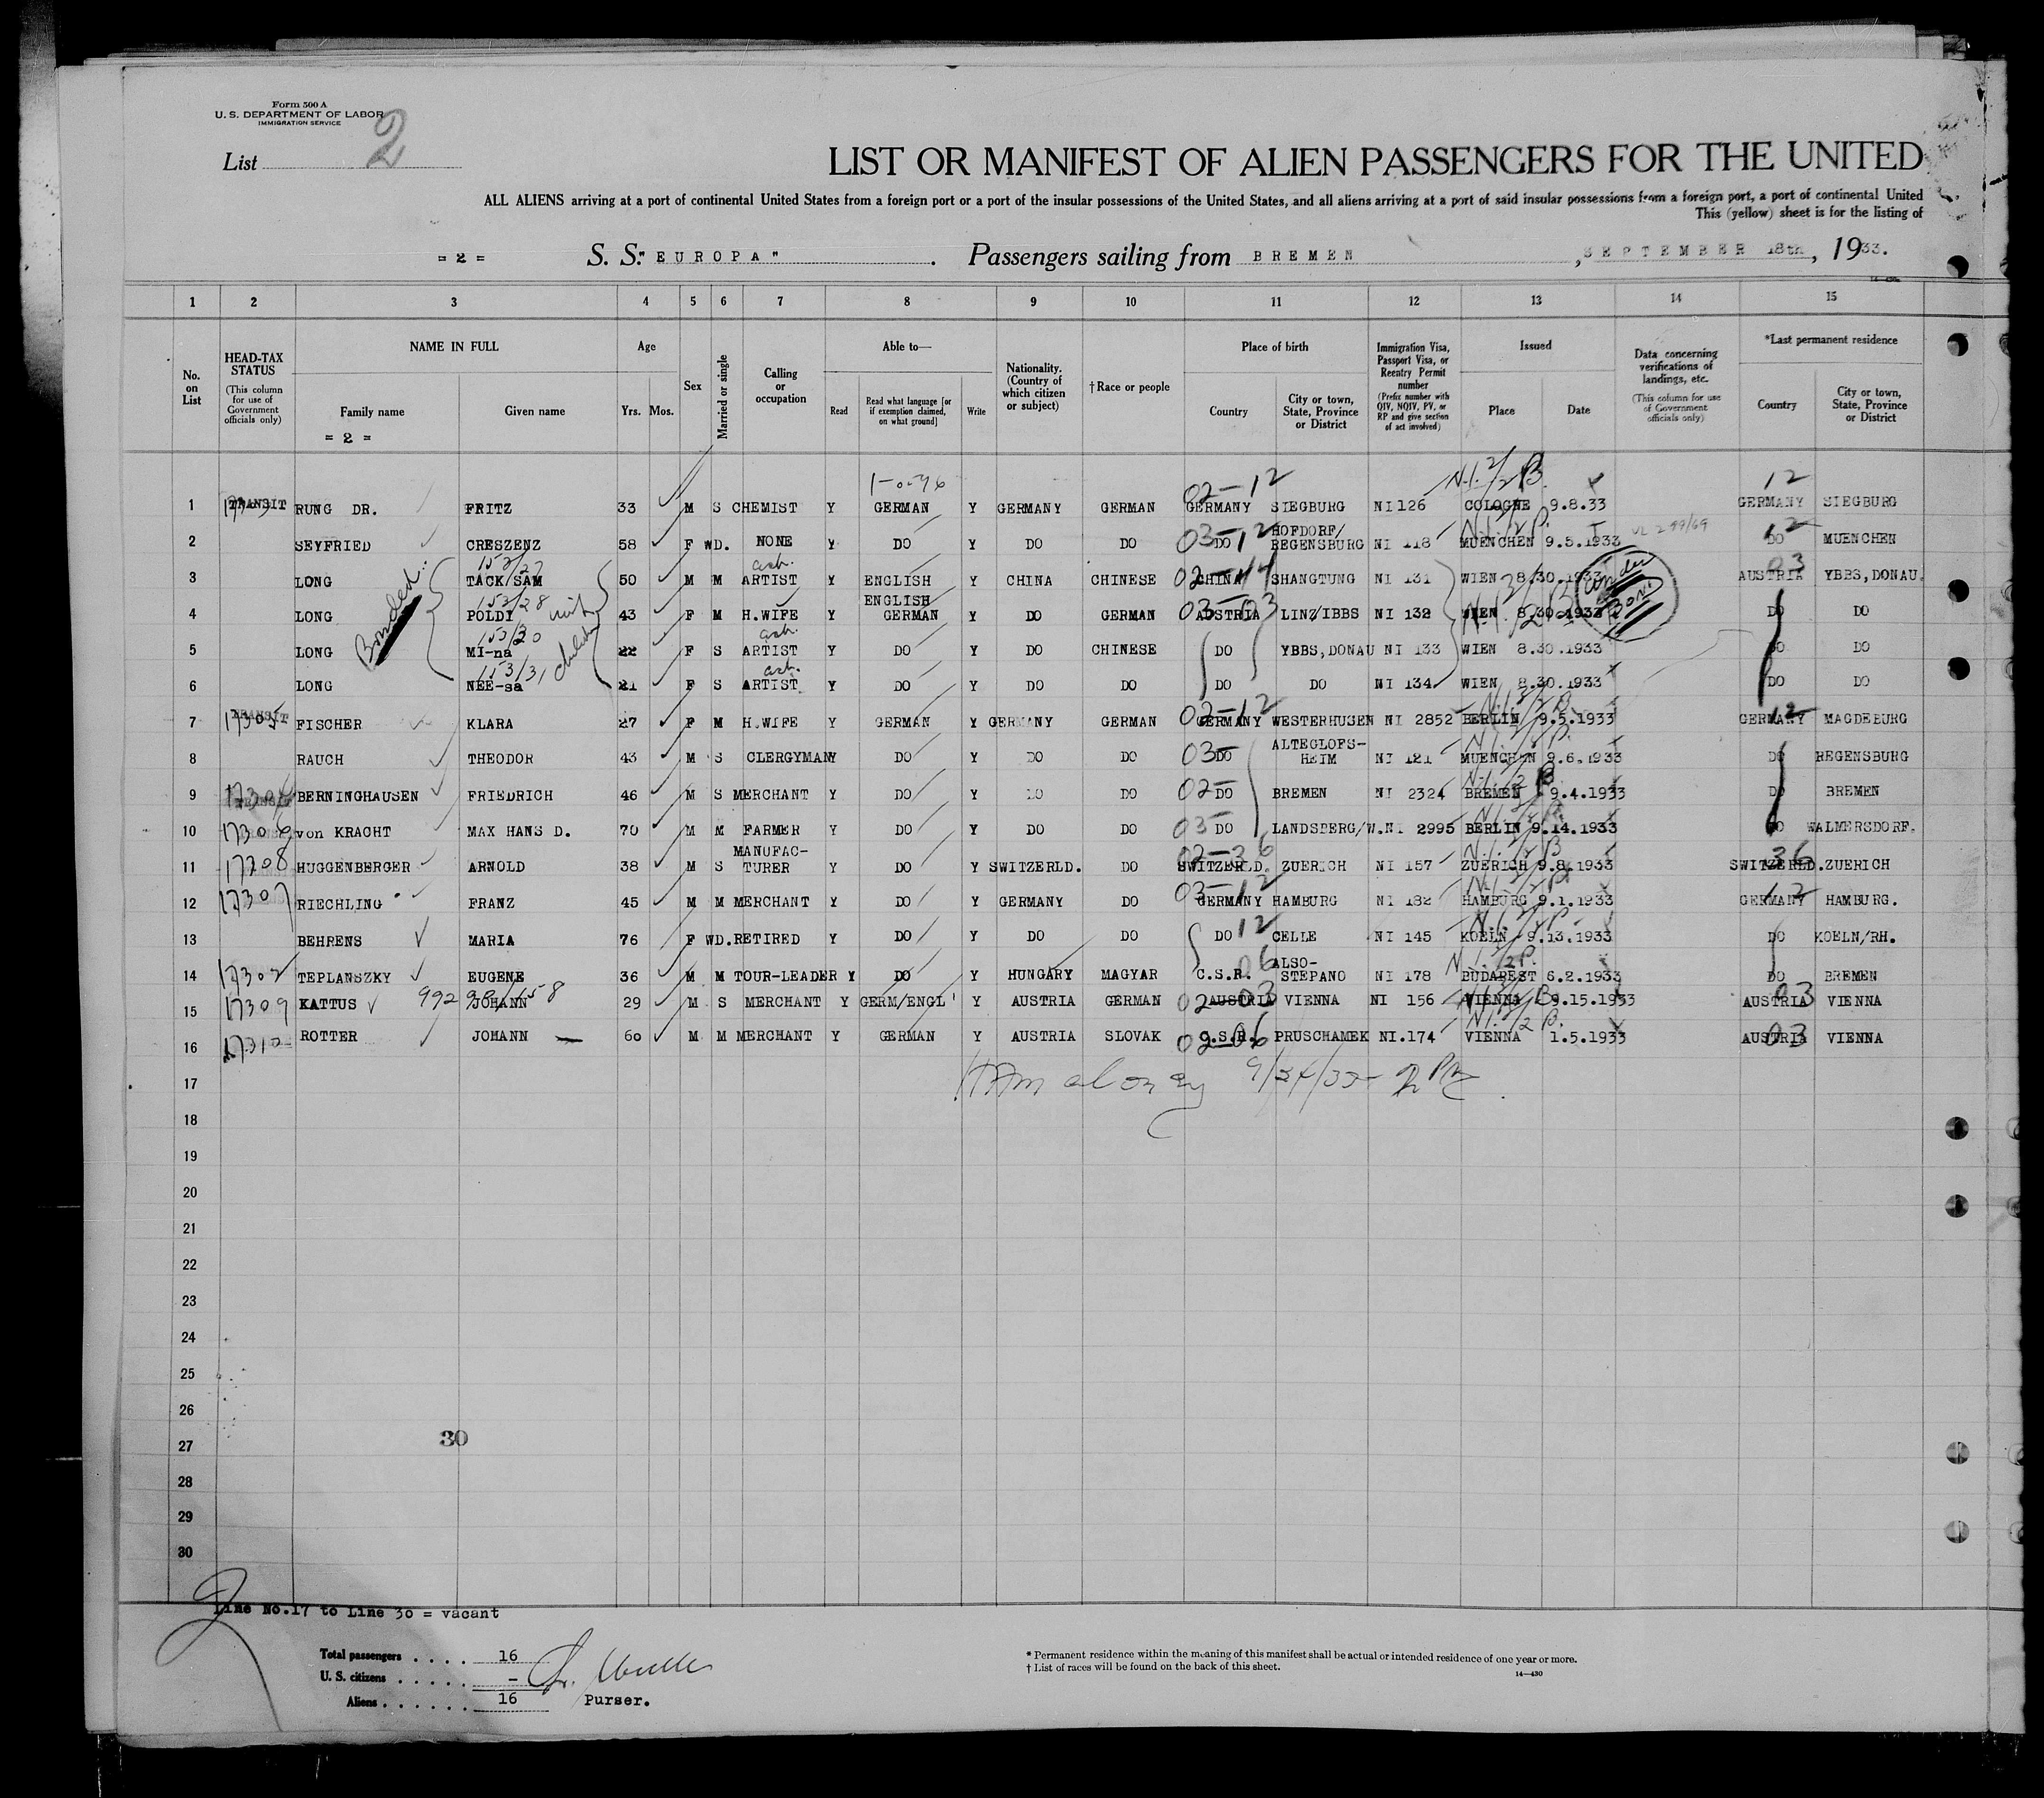 Form 500 A
U. S. DEPARTMENT OF LABOR
IMMIGRATION SERVICE
List 2
LIST OR MANIFEST OF ALIEN PASSENGERS FOR THE UNITED
ALL ALIENS arriving at a port of continental United States from a foreign port or a port of the insular possessions of the United States, and all aliens arriving at a port of said insular possessions from a foreign port, a port of continental United
This (yellow) sheet is for the listing of
= 2 = S. S. "EUROPA" . Passengers sailing from BREMEN , SEPTEMBER 18th , 1933.
1 2 3 4 5 6 7 8 9 10 11 12 13 14 15
No. on List
HEAD-TAX STATUS
(This column for use of Government officials only)
NAME IN FULL
Family name Given name
= 2 =
Age
Yrs. Mos.
Sex
Married or single
Calling or occupation
Able to—
Read Read what language [or if exemption claimed, on what ground] Write
Nationality. (Country of which citizen or subject)
†Race or people
Place of birth
Country City or town, State, Province or District
Immigration Visa, Passport Visa, or Reentry Permit number
(Prefix number with QIV, NQIV, PV, or RP and give section of act involved)
Issued
Place Date
Data concerning verifications of landings, etc.
(This column for use of Government officials only)
*Last permanent residence
Country City or town, State, Province or District
1-0-96 02-12 N.I. 2/2 B. 12
1 TRANSIT RUNG DR. FRITZ 33 M S CHEMIST Y GERMAN Y GERMANY GERMAN GERMANY SIEGBURG NI 126 COLOGNE 9.8.33 GERMANY SIEGBURG
2 SEYFRIED CRESZENZ 58 F WD. NONE Y DO Y DO DO 03-12 DO HOFDORF/ REGENSBURG NI 118 MUENCHEN 9.5.1933 12 DO MUENCHEN
Bonded
152/27
3 LONG TACK SAM 50 M M ARTIST Y ENGLISH Y CHINA CHINESE 02-44 CHINA SHANGTUNG NI 131 WIEN 8.30.1933 03 AUSTRIA YBBS, DONAU.
152/28
4 LONG POLDI 43 F M H.WIFE Y ENGLISH GERMAN Y DO GERMAN 03-03 AUSTRIA LINZ/IBBS NI 132 WIEN 8.30.1933 DO DO
153/30
5 LONG MI-na 22 F S ARTIST Y DO Y DO CHINESE DO YBBS, DONAU NI 133 WIEN 8.30.1933 DO DO
153/31
6 LONG NEE-sa 21 F S ARTIST Y DO Y DO DO DO DO NI 134 WIEN 8.30.1933 DO DO
7 17305 TRANSIT FISCHER KLARA 27 F M H.WIFE Y GERMAN Y GERMANY GERMAN 02-12 GERMANY WESTERHUSEN NI 2852 BERLIN 9.5.1933 12 GERMANY MAGDEBURG
8 RAUCH THEODOR 43 M S CLERGYMAN Y DO Y DO DO 03- DO ALTEGLOFS- HEIM NI 121 MUENCHEN 9.6.1933 DO REGENSBURG
9 BERNINGHAUSEN FRIEDRICH 46 M S MERCHANT Y DO Y DO DO 02- DO BREMEN NI 2324 BREMEN 9.4.1933 DO BREMEN
10 17306 von KRACHT MAX HANS D. 70 M M FARMER Y DO Y DO DO 03- DO LANDSBERG/W. NI 2995 BERLIN 9.14.1933 DO WALMERSDORF.
11 HUGGENBERGER ARNOLD 38 M S MANUFAC- TURER Y DO Y SWITZERLD. DO 02-36 SWITZERLD. ZUERICH NI 157 ZUERICH 9.8.1933 36 SWITZERLD. ZUERICH
12 17307 RIECHLING FRANZ 45 M M MERCHANT Y DO Y GERMANY DO 03-12 GERMANY HAMBURG NI 182 HAMBURG 9.1.1933 12 GERMANY HAMBURG.
13 BEHRENS MARIA 76 F WD. RETIRED Y DO Y DO DO DO 12 CELLE NI 145 KOELN 9.13.1933 DO KOELN/RH.
14 17302 TEPLANSZKY EUGENE 36 M M TOUR-LEADER Y DO Y HUNGARY MAGYAR 06 C.S.R. ALSO- STEPANO NI 178 BUDAPEST 6.2.1933 DO BREMEN
15 17309 KATTUS JOHANN 29 M S MERCHANT Y GERM/ENGL' Y AUSTRIA GERMAN 02 03 AUSTRIA VIENNA NI 156 VIENNA 9.15.1933 03 AUSTRIA VIENNA
16 17310 ROTTER JOHANN 60 M M MERCHANT Y GERMAN Y AUSTRIA SLOVAK 02 06 C.S.R. PRUSCHAMEK NI.174 VIENNA 1.5.1933 03 AUSTRIA VIENNA
17
18
19
20
21
22
23
24
25
26
27
30
28
29
30
Line No.17 to Line 30 = vacant
Total passengers . . . . 16
U. S. citizens . . . . . –
Aliens . . . . . . 16 Purser.
* Permanent residence within the meaning of this manifest shall be actual or intended residence of one year or more.
† List of races will be found on the back of this sheet.
14—430